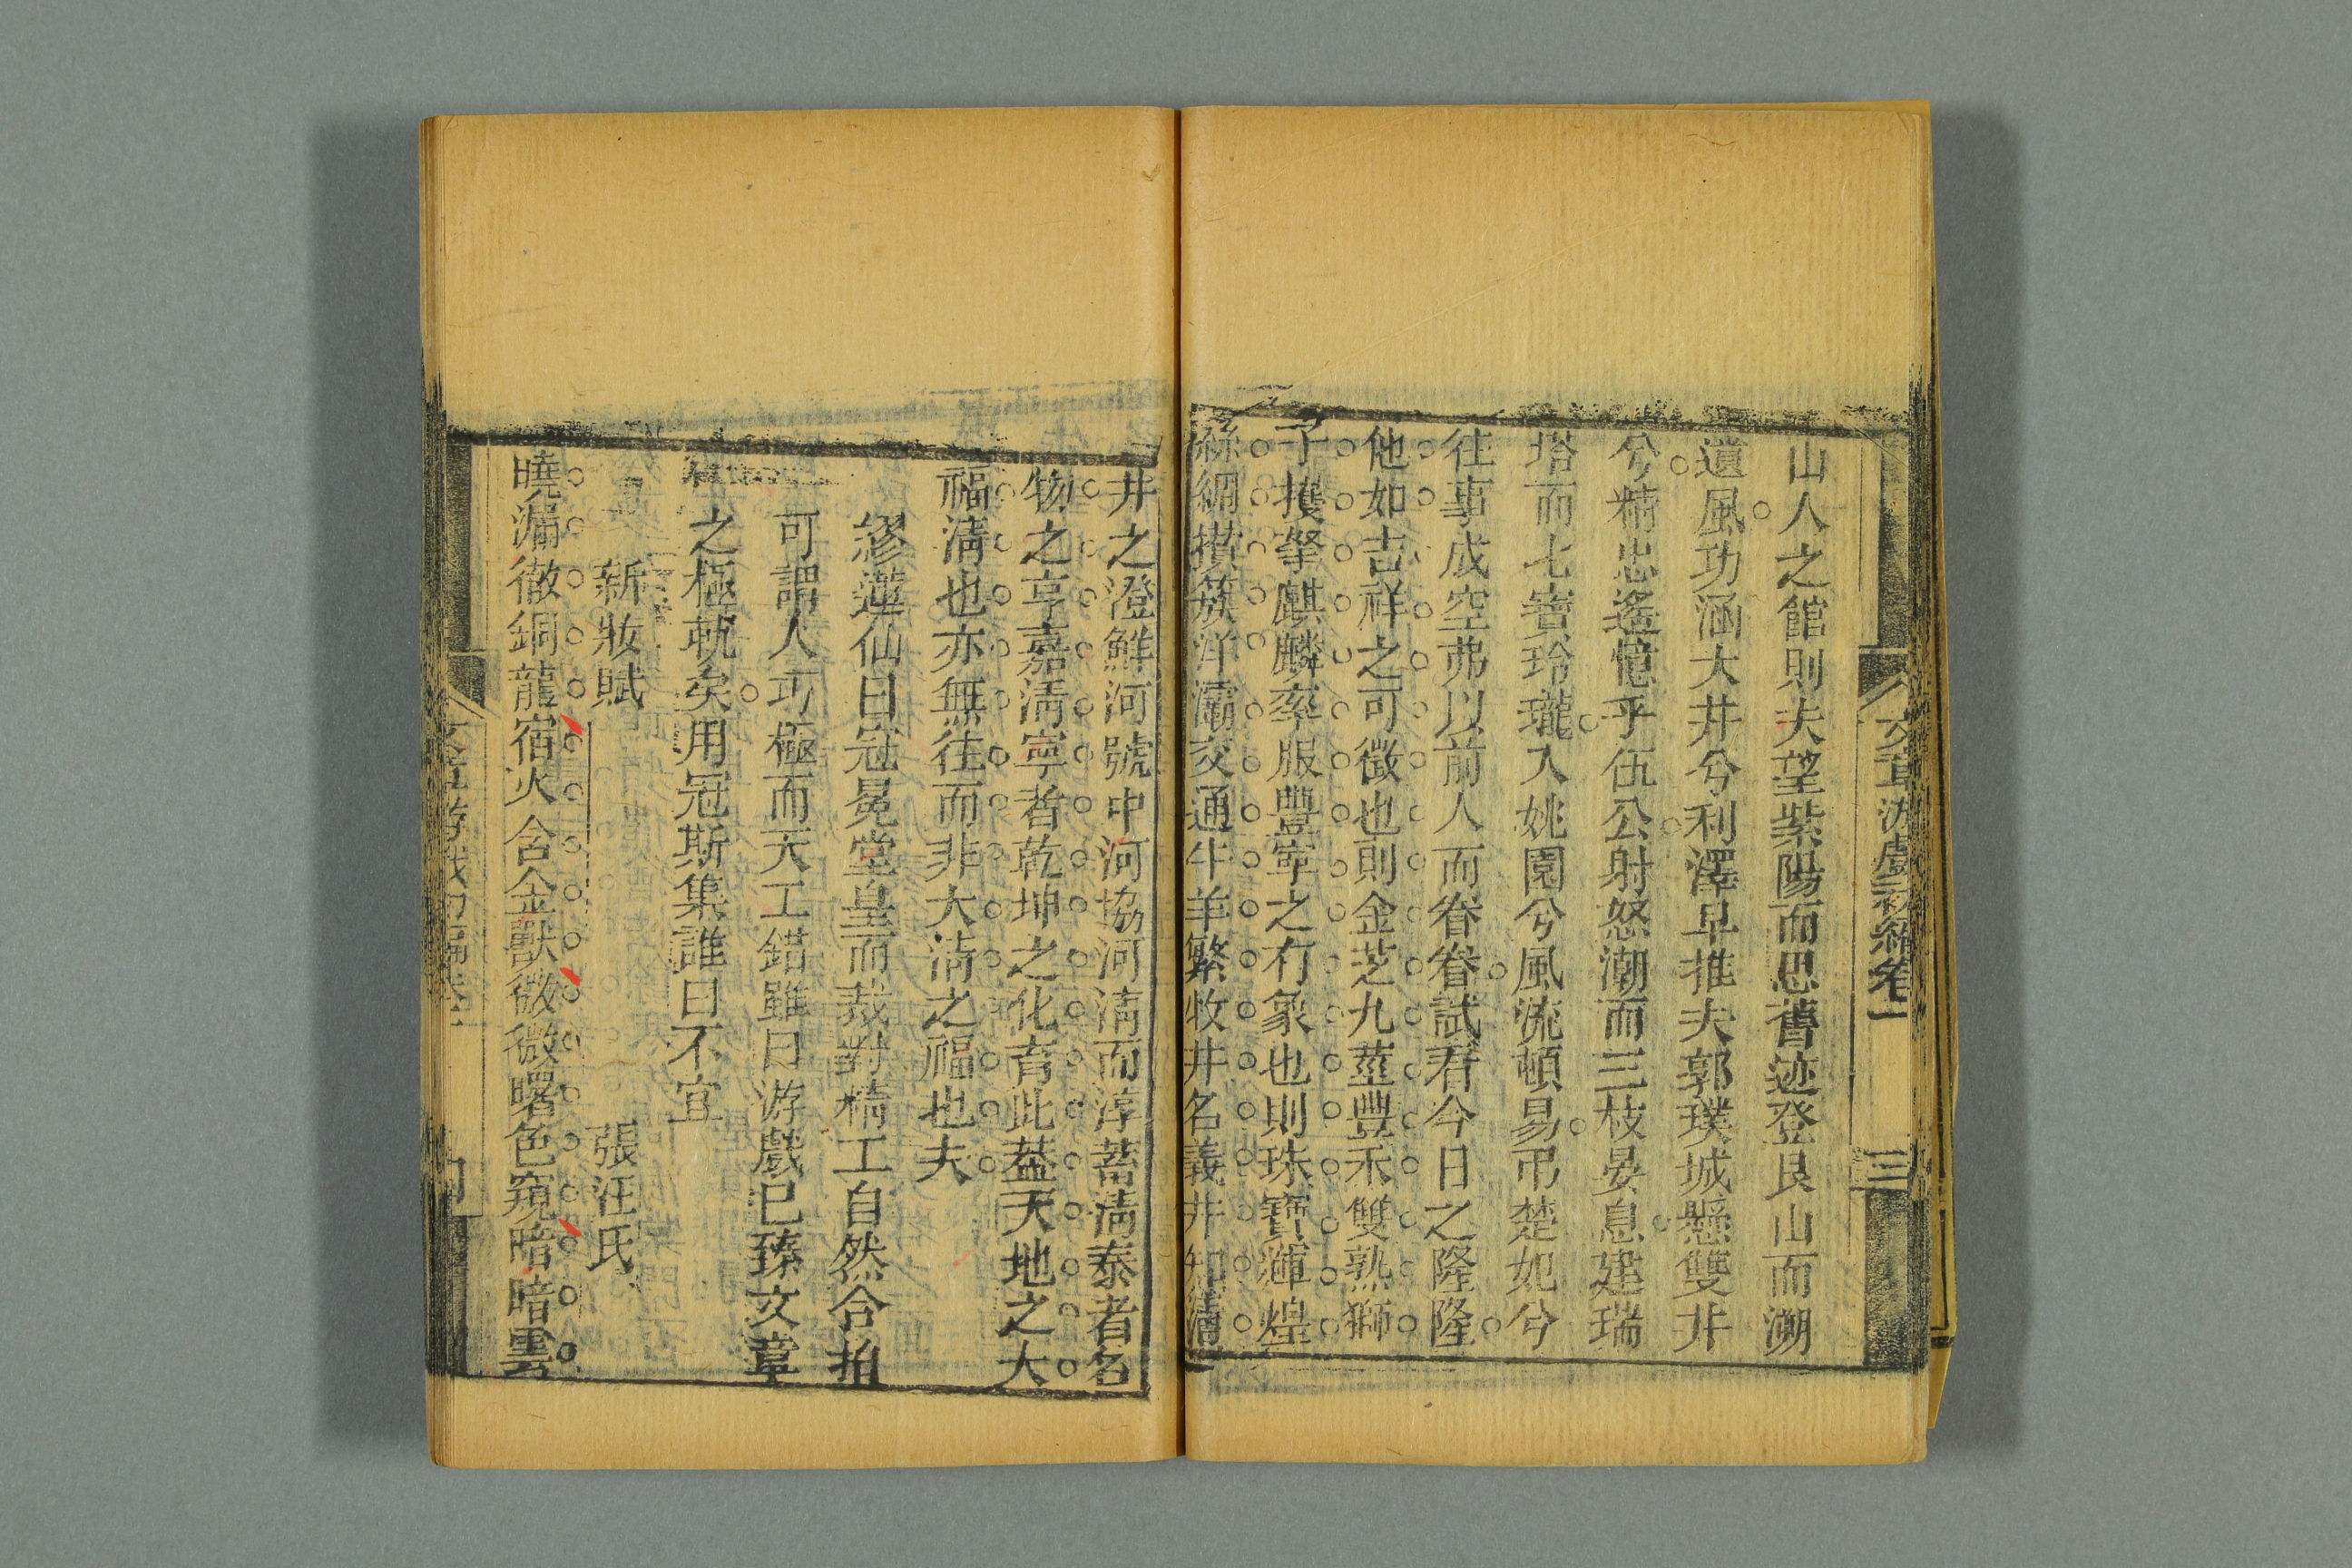 文章游戲初編卷一
三
山人之館則夫望紫陽而思舊迹登艮山而溯
遺風功涵大井兮利澤早推夫郭璞城懸雙井
兮精忠遙憶乎伍公射怒潮而三枝晏息建瑞
塔而七寶玲瓏入姚園兮風流頓易弔楚妃兮
往事成空弗以前人而眷眷試看今日之隆隆
他如吉祥之可徵也則金芝九莖豐禾雙熟獅
子㩴拏麒麟率服豐寧之有象也則珠寶輝煌
絲綢攢簇洋灞交通牛羊繁牧井名義井知清
井之澄鮮河號中河協河清而淳蓄清泰者名
物之亨嘉清寧者乾坤之化育此葢天地之大
福清也亦無往而非大清之福也夫
繆蓮仙曰冠冕堂皇而裁對精工自然合拍
可謂人巧極而天工錯雖曰游戲已臻文章
之極軌矣用冠斯集誰曰不宜
新妝賦
張汪氏
曉漏徹銅龍宿火含金獸微微曙色窺暗暗雲